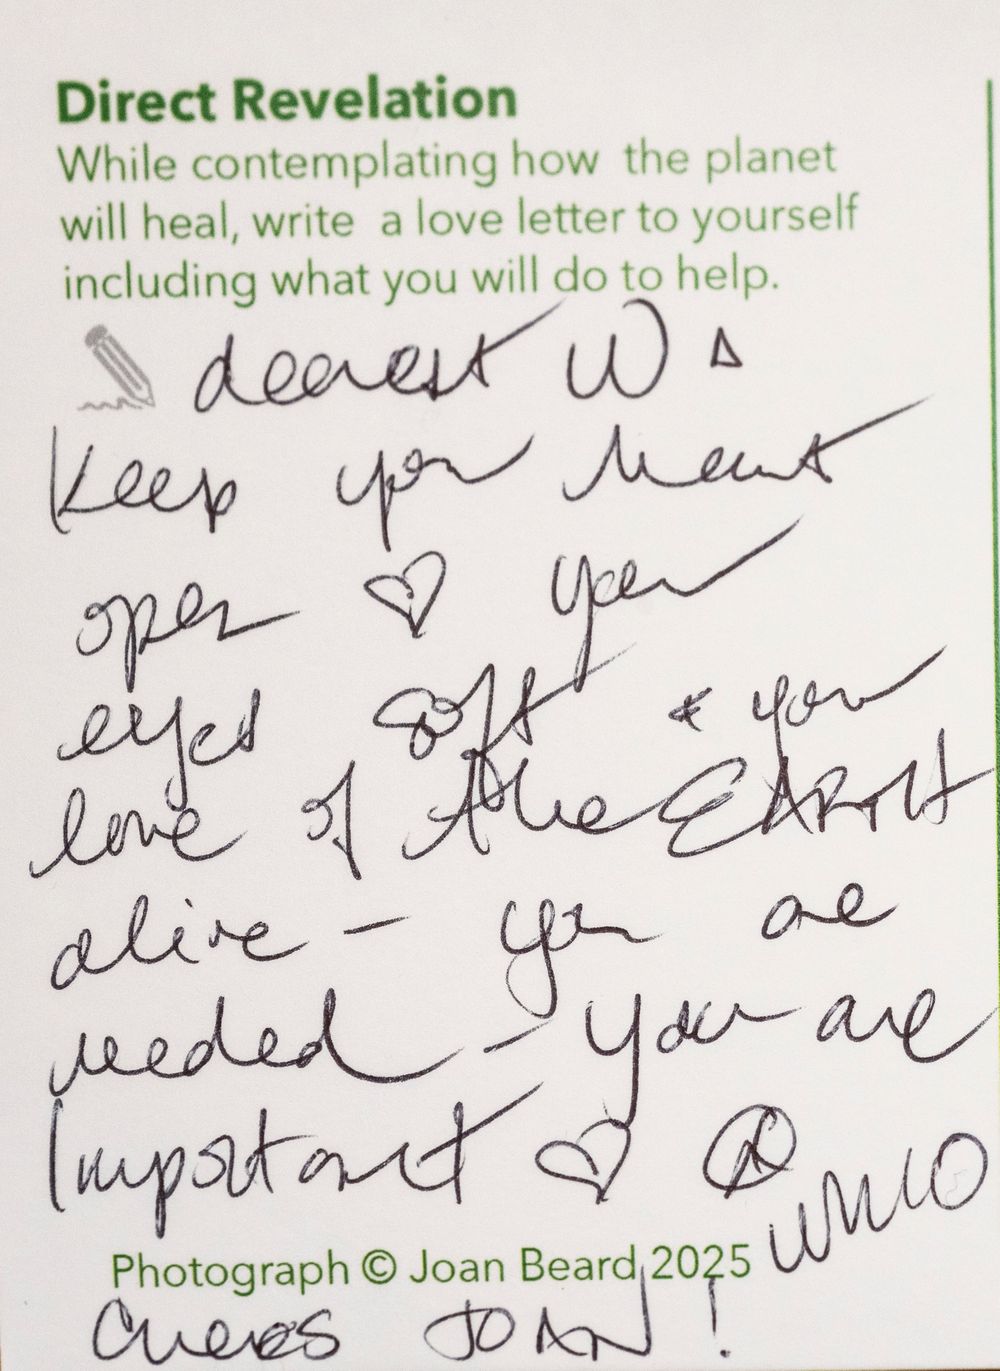 Direct Revelation
While contemplating how the planet
will heal, write a love letter to yourself
including what you will do to help.
dearest W
Keep your heart
open ♡ your
eyes soft & your
love of the EARTH
alive – you are
needed – you are
Important ♡
Photograph © Joan Beard 2025
Cheers JOAN!